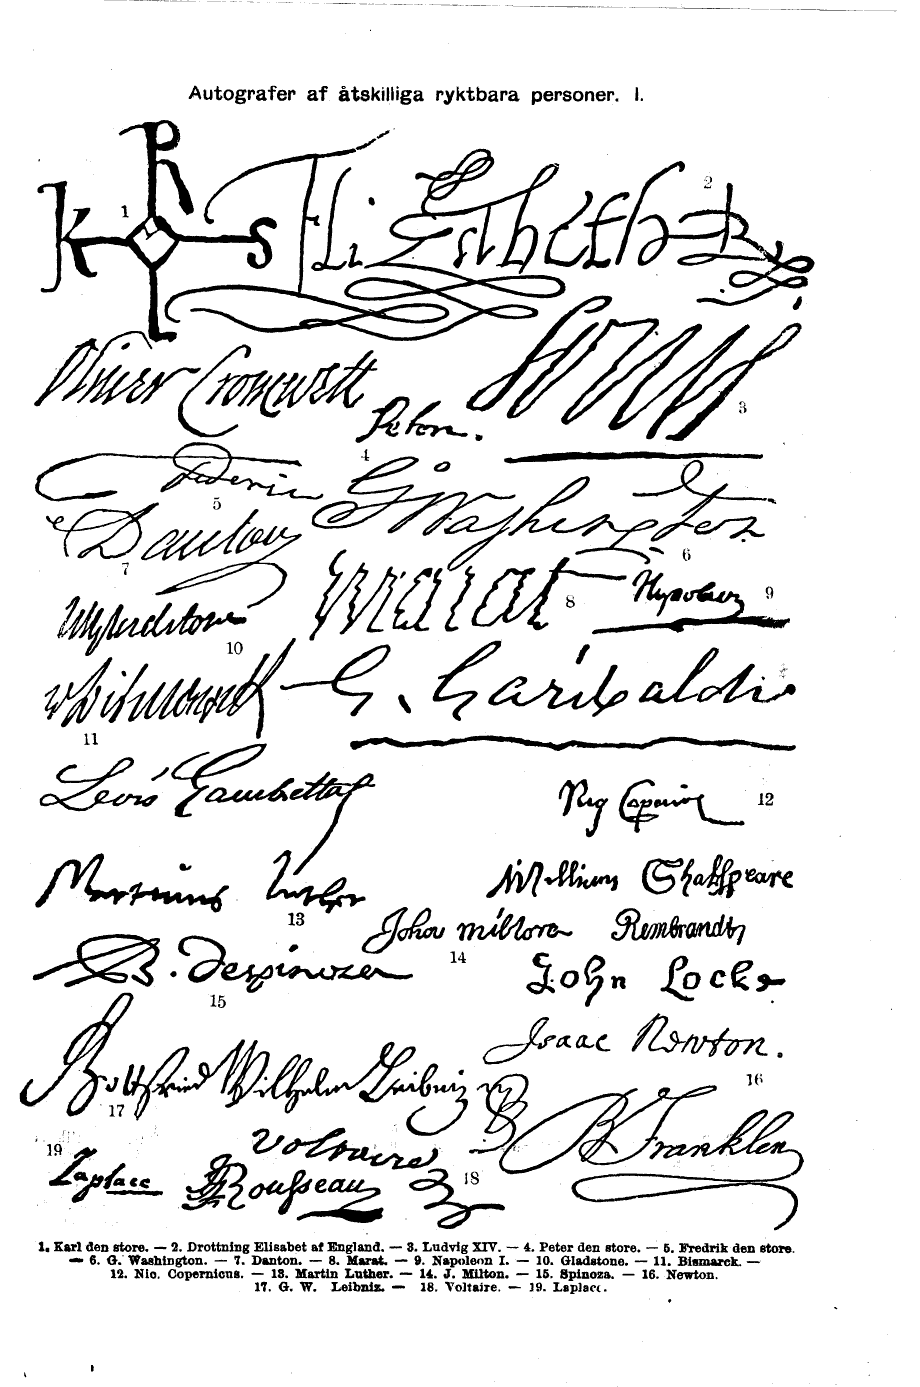 Autografer af åtskilliga ryktbara personer. I.
K R S L
1
Elizabeth R
2
Louis
3
Oliver Cromwell
Peter.
4
Federic
5
GWashington
6
Danton
7
Marat
8
Napoleon
9
WEGladstone
10
vBismarck
11
G. Garibaldi
Léon Gambetta
Nic Copernic
12
Martinus Luther
13
William Shakspeare
John Milton
14
Rembrandt
B. despinoza
15
John Locke
Isaac Newton.
16
Gottfried Wilhelm Leibniz
17
B Franklin
Voltaire
18
19
Laplace
JJRousseau
1. Karl den store. — 2. Drottning Elisabet af England. — 3. Ludvig XIV. — 4. Peter den store. — 5. Fredrik den store.
— 6. G. Washington. — 7. Danton. — 8. Marat. — 9. Napoleon I. — 10. Gladstone. — 11. Bismarck. —
12. Nic. Copernicus. — 13. Martin Luther. — 14. J. Milton. — 15. Spinoza. — 16. Newton.
17. G. W. Leibniz. — 18. Voltaire. — 19. Laplace.